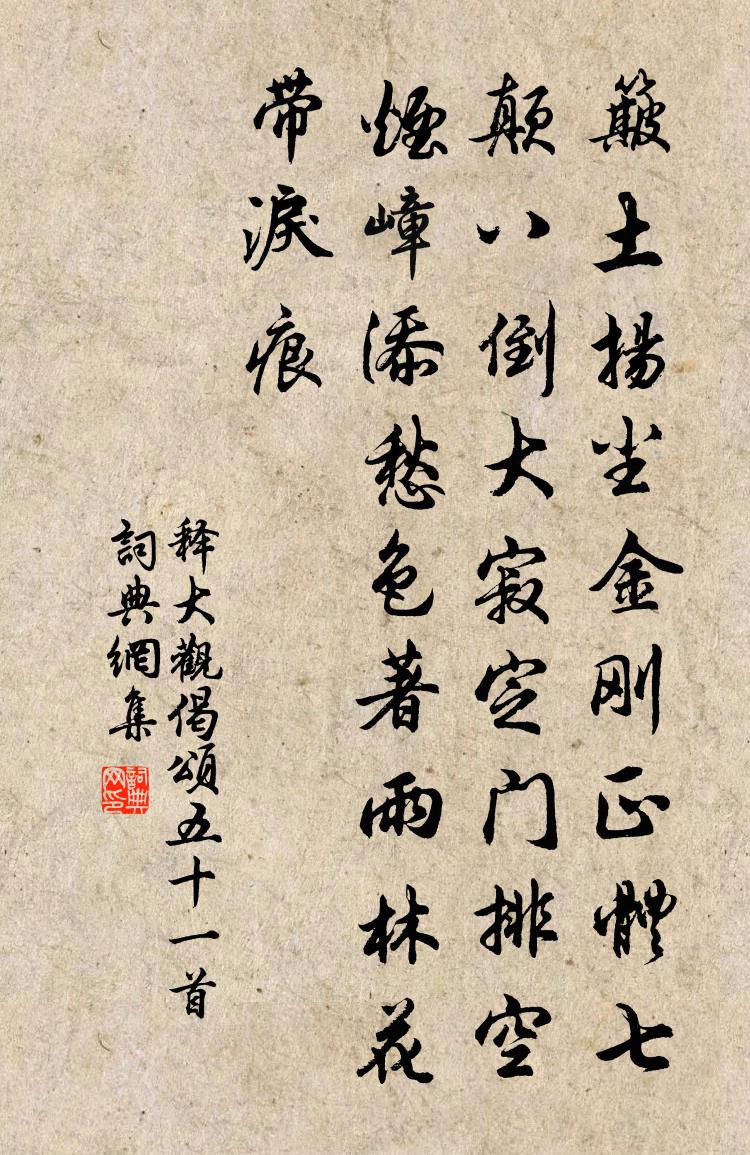 簸土揚尘金刚正體七
颠八倒大寂定门排空
烟嶂添愁色著雨林花
带淚痕
释大觀偈頌五十一首
詞典網集
詞典网印